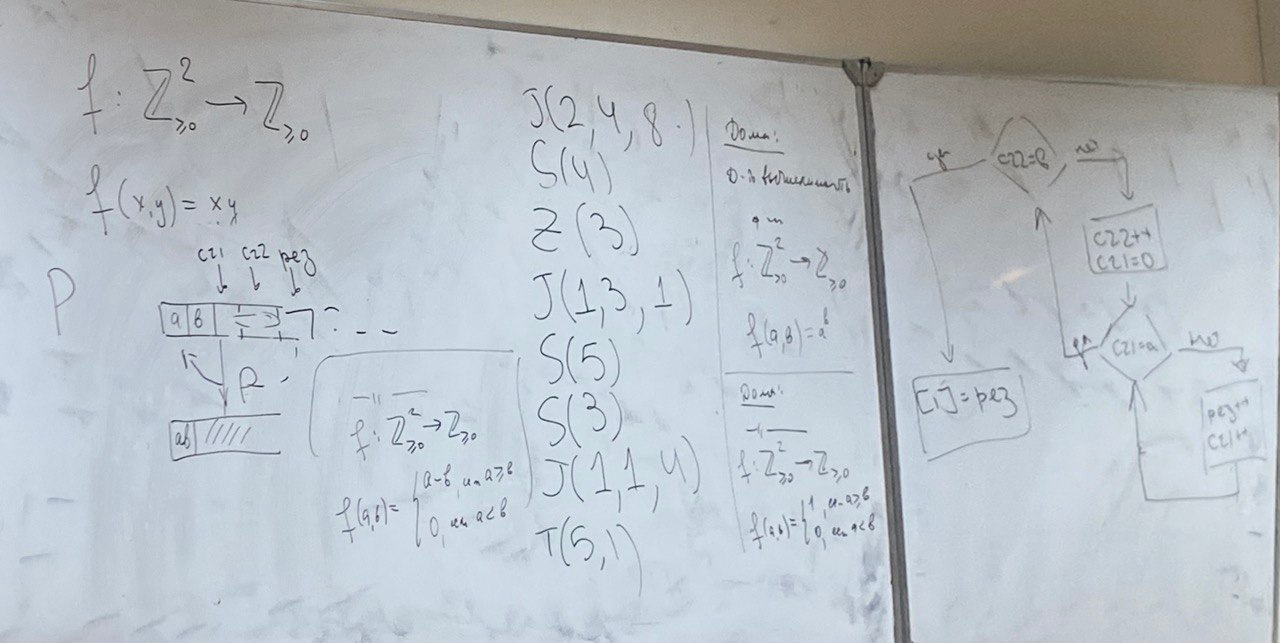 f: ℤ²≥0 → ℤ≥0
f(x,y) = xy
сч1 сч2 рез
P
a b
P
ab
—〃—
f: ℤ²≥0 → ℤ≥0
f(a,b) = { a-b, если a≥b
0, если a<b
J(2,4,8)
S(4)
Z(3)
J(1,3,1)
S(5)
S(3)
J(1,1,4)
T(5,1)
Дома:
f: ℤ²≥0 → ℤ≥0
f(a,b) = aᵇ
Дома:
—〃—
f: ℤ²≥0 → ℤ≥0
f(a,b) = { 1, если a≥b
0, если a<b
да
сч2=b
no
сч2++
сч1=0
да
сч1=a
no
рез++
сч1++
[1]=рез